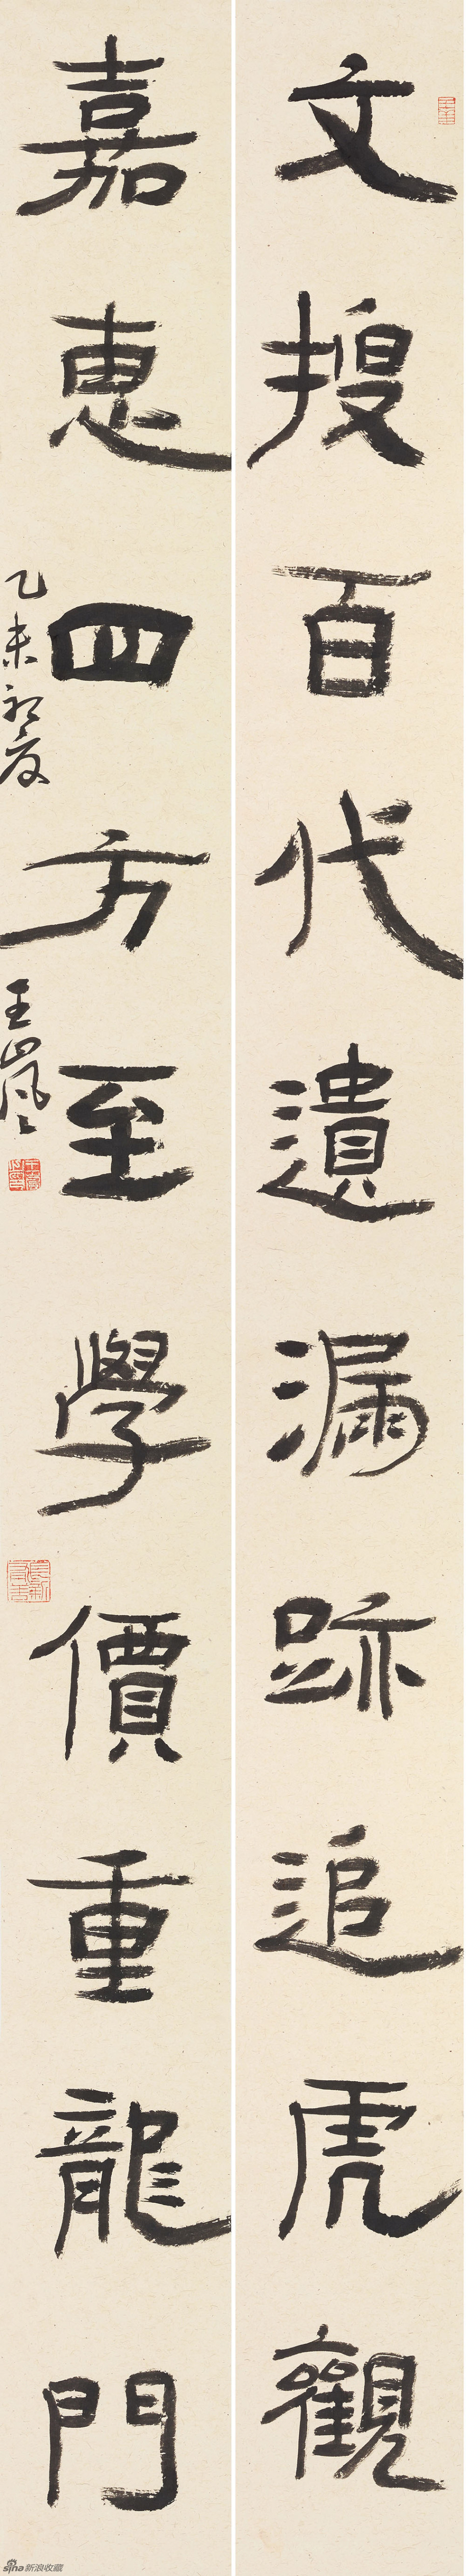 文搜百代遺漏跡追虎觀
嘉惠四方至學價重龍門
乙未初夏
王嵐
sina新浪收藏